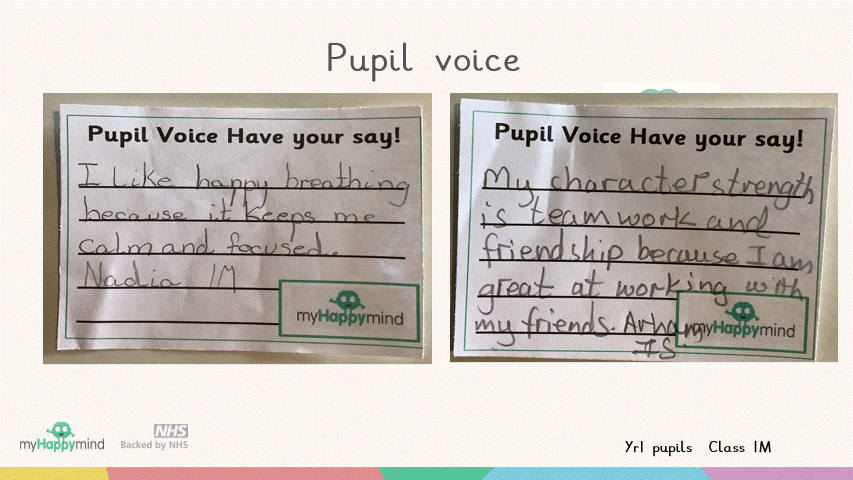 Pupil voice
Pupil Voice Have your say!
I like happy breathing
because it keeps me
calm and focused.
Nadia 1M
myHappymind
Pupil Voice Have your say!
My character strength
is teamwork and
friendship because I am
great at working with
my friends. Arham
1S
myHappymind
myHappymind
NHS
Backed by NHS
Yr1 pupils Class 1M